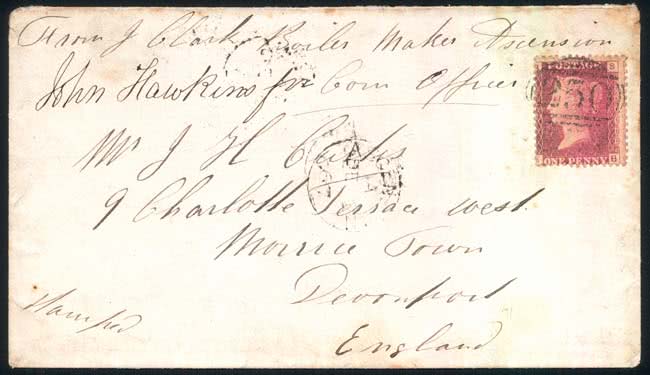 From J Clark Boiler Maker Ascension
John Hawkins for Com Officer
Mr J H Clark
9 Charlotte Terrace West
Morrice Town
Devonport
England
stamped
POSTAGE
250
ONE PENNY